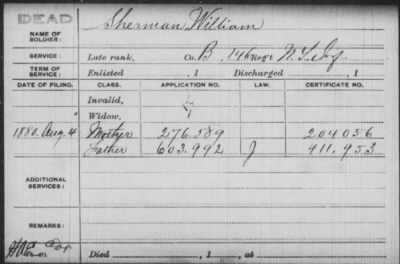 DEAD
NAME OF SOLDIER: Sherman William
SERVICE: Late rank, Co. B, 146 Reg't N.Y. Inf
TERM OF SERVICE: Enlisted , 1 Discharged , 1
DATE OF FILING. CLASS. APPLICATION NO. LAW. CERTIFICATE NO.
Invalid,
Widow,
1880. Aug. 4 Mother 276.589 204056
Father 603.992 J 411.953
ADDITIONAL SERVICES:
REMARKS:
Died , 1 , at